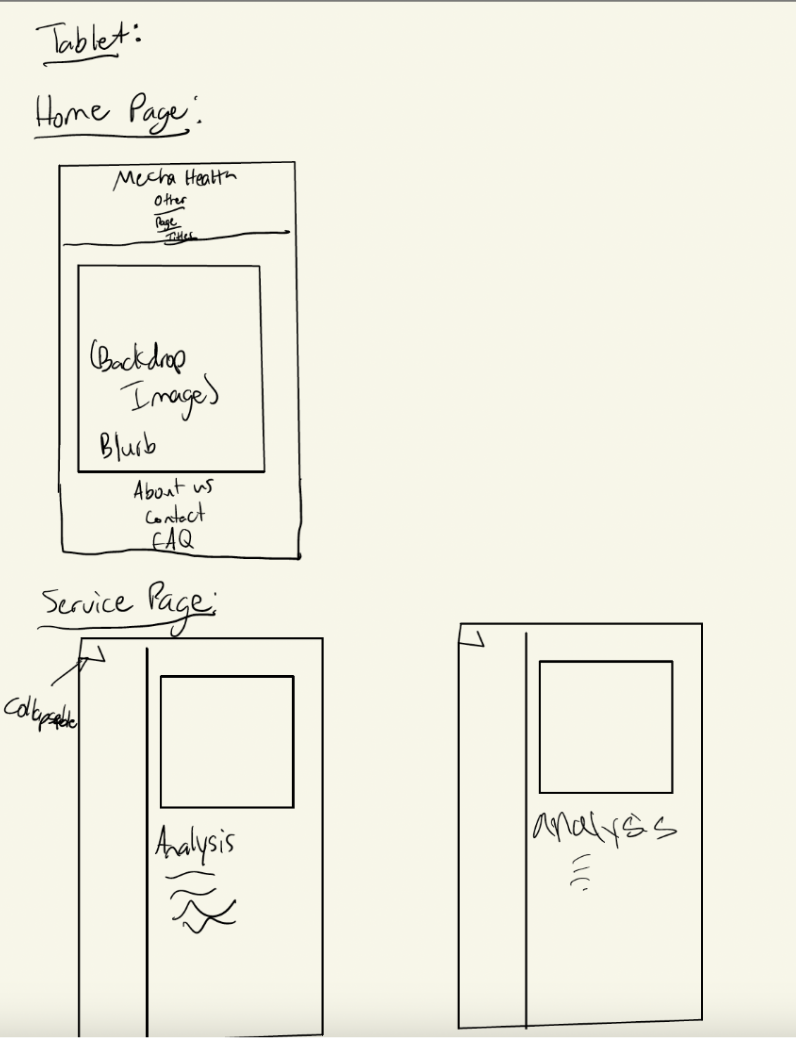 Tablet:
Home Page:
Mecha Health
Other
Page
Titles
(Backdrop
Image)
Blurb
About us
Contact
FAQ
Service Page:
Collapsable
Analysis
Analysis